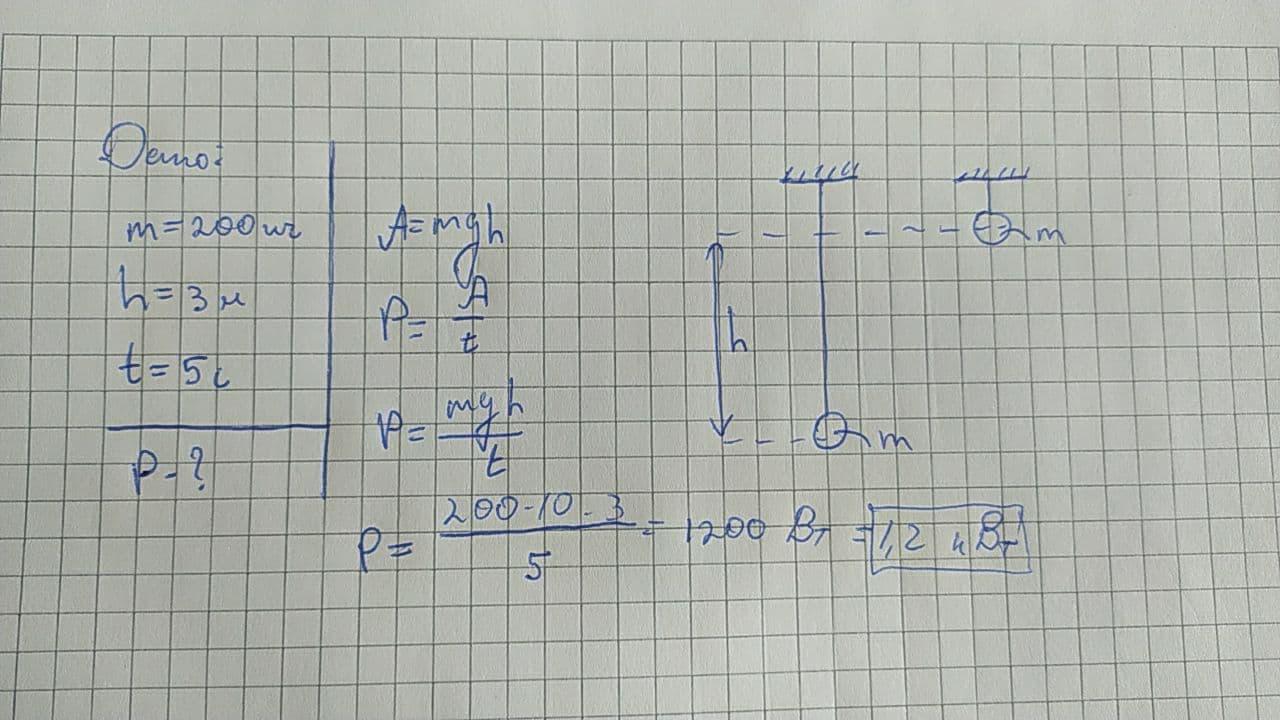 Дано:
m = 200 кг
h = 3 м
t = 5 с
P - ?
A = mgh
P = A/t
P = mgh/t
P = 200·10·3/5 = 1200 Вт = 1,2 кВт
m
h
m